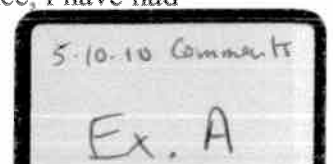 ce, I have had
5-10-10 Comments
Ex. A